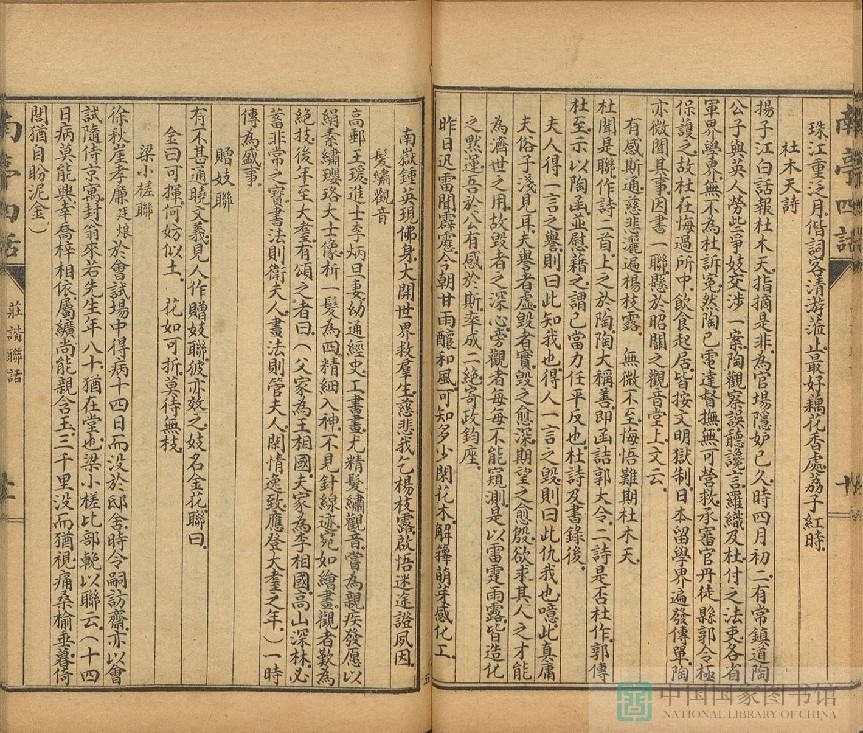 南亭四話
十
珠江重泛月偕詞客清游溢止最好藕花香處荔子紅時
杜木天詩
揚子江白話報杜木天指摘是非為官場隱妒已久時四月初二有常鎮道陶
公子與英人勞池爭妓交涉一案陶觀察誤聽讒言羅織及杜付之法吏各省
軍界學界無不為杜訴冤然陶已電達督撫無可營救承審官丹徒縣郭令極
保護之故杜在悔過所中飲食起居皆按文明獄制日本留學界遍發傳單陶
亦微聞其事因書一聯懸於昭關之觀音堂上文云
有感斯通慈悲灑遍楊枝露　無微不至悔悟難期杜木天
杜聞是聯作詩二首上之於陶陶大稱善即函詰郭大令二詩是否杜作郭傳
杜至示以陶函並慰藉之謂已當力任平反也杜詩及書錄後
夫人得一言之譽則曰此知我也得人一言之毀則曰此仇我也噫此真庸
夫俗子淺見耳夫譽者虛毀者實毀之愈深期望之愈殷欲求其人之才能
為濟世之用故毀者之深心旁觀者每每不能窺測是以雷霆雨露皆造化
之默運吾於公有感於斯率成二絕寄政鈞座
昨日迅雷聞霹靂今朝甘雨釀和風可知多少閑花木解籜萌芽感化工
南嶽鍾英現佛身大開世界救羣生慈悲我乞楊枝露啟悟迷途證夙因
髮繡觀音
高郵王瑗進士李炳旦妻幼通經史工書畫尤精髮繡觀音嘗為親疾發愿以
絹素繡瓔珞大士像析一髮為四精細入神不見針線迹宛如繪畫觀者歎為
絕技後年至大耋有頌之者曰（父家為王相國夫家為李相國高山深林必
蓄非常之寶書法則衛夫人畫法則管夫人閑情逸致應登大耋之年）一時
傳為盛事
贈妓聯
有不甚通曉文義見人作贈妓聯彼亦效之妓名金花聯曰
金曰可揮何妨似土　花如可折莫待無枝
梁小槎聯
徐秋崖孝廉廷烺於會試場中得病十四日而没於邸舍時令嗣訪齋亦以會
試隨侍京寓封翁來若先生年八十猶在堂也梁小槎比部輓以聯云（十四
日病莫能興幸喬梓相依屬纊尚能親含玉三千里没而猶視痛桑榆垂暮倚
閭猶自盼泥金）
南亭四話
莊諧聯話
五
中国国家图书馆
NATIONAL LIBRARY OF CHINA